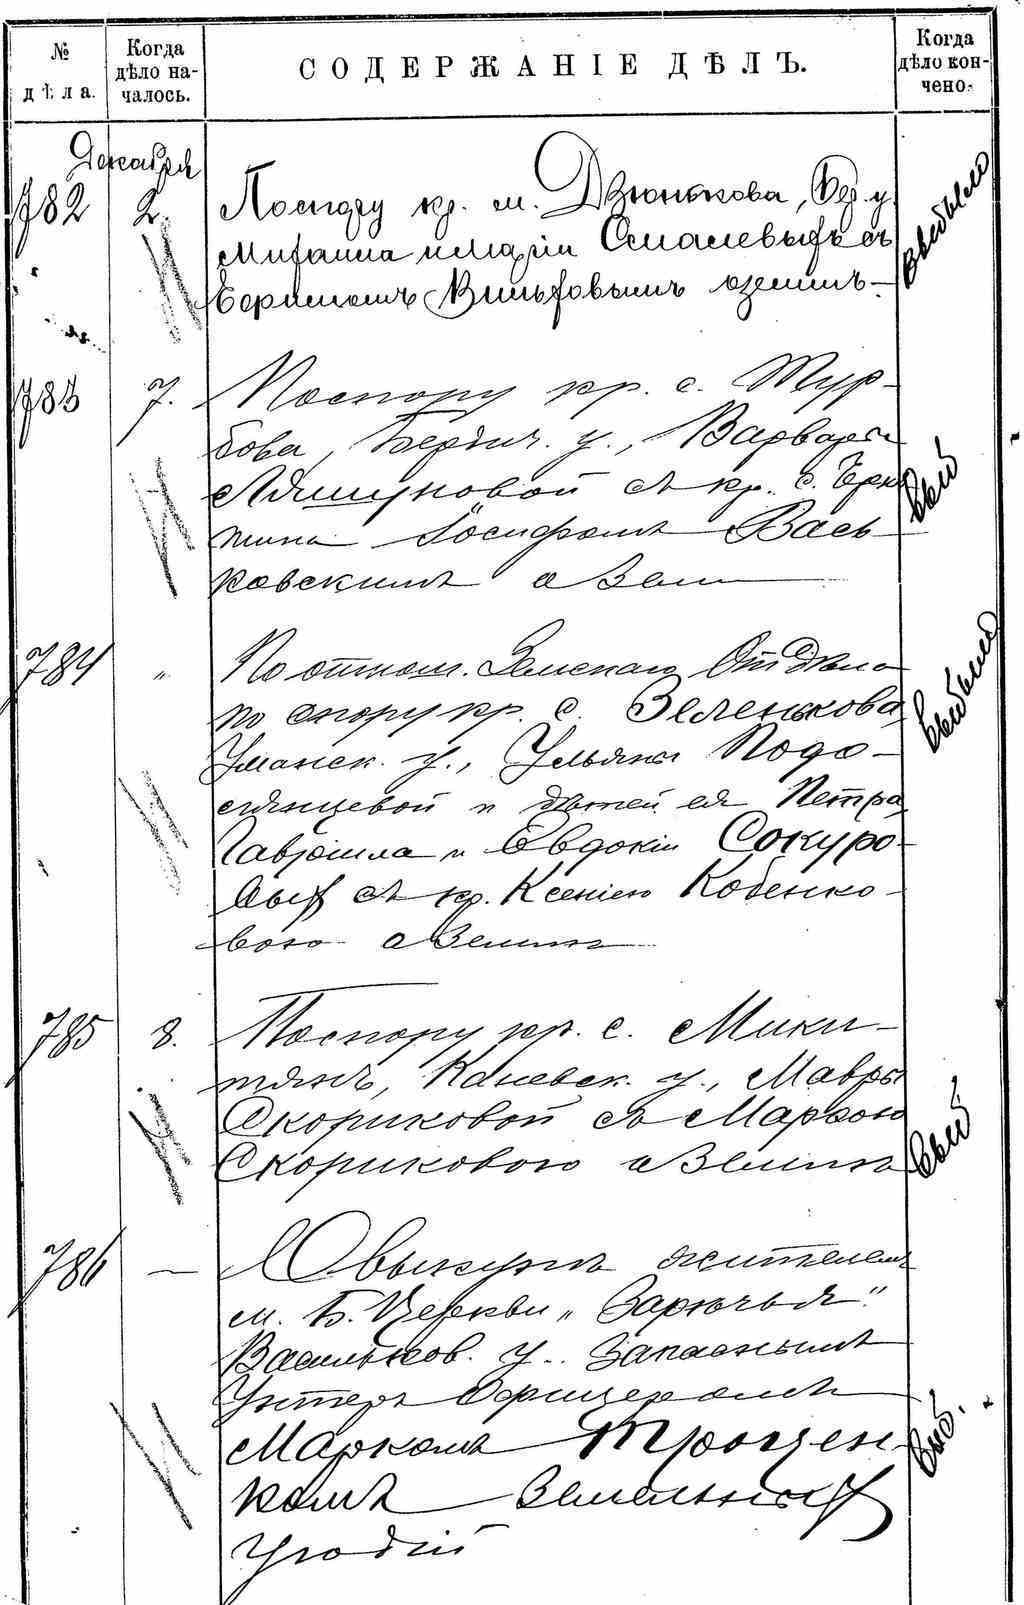 № дѣла.
Когда дѣло началось.
СОДЕРЖАНІЕ ДѢЛЪ.
Когда дѣло кончено.
Декабря
782
2.
По спору кр. м. Дзюнькова, Бер. у.
Михаила и Маріи
съ
Вильговымъ о земл.
выбыло
783
7.
По спору кр. с. Тур-
бова, Бердич. у., Варвары
Ляшуковой съ кр. с.
Іосифомъ Вась-
ковскимъ о зем
выб
784
"
По отнош. Земскаго Отдѣла
по спору кр. с. Зеленькова,
Уманск. у., Ульяны Подо-
лянцевой и дѣтей ея Петра,
Гавріила и Евдокіи Сокуро-
выхъ съ кр. Ксеніею Кобенко-
вою о землѣ
выбыло
785
8.
По спору кр. с. Мики-
тянъ, Каневск. у., Мавры
Скориковой съ Марѳою
Скориковою о землѣ
выб
786
—
О выкупѣ жителемъ
м. Б. Церкви „Зарѣчья"
Васильков. у. запаснымъ
Унтеръ Офицеромъ
Маркомъ Троцен-
комъ земельныхъ
угодій
выб.